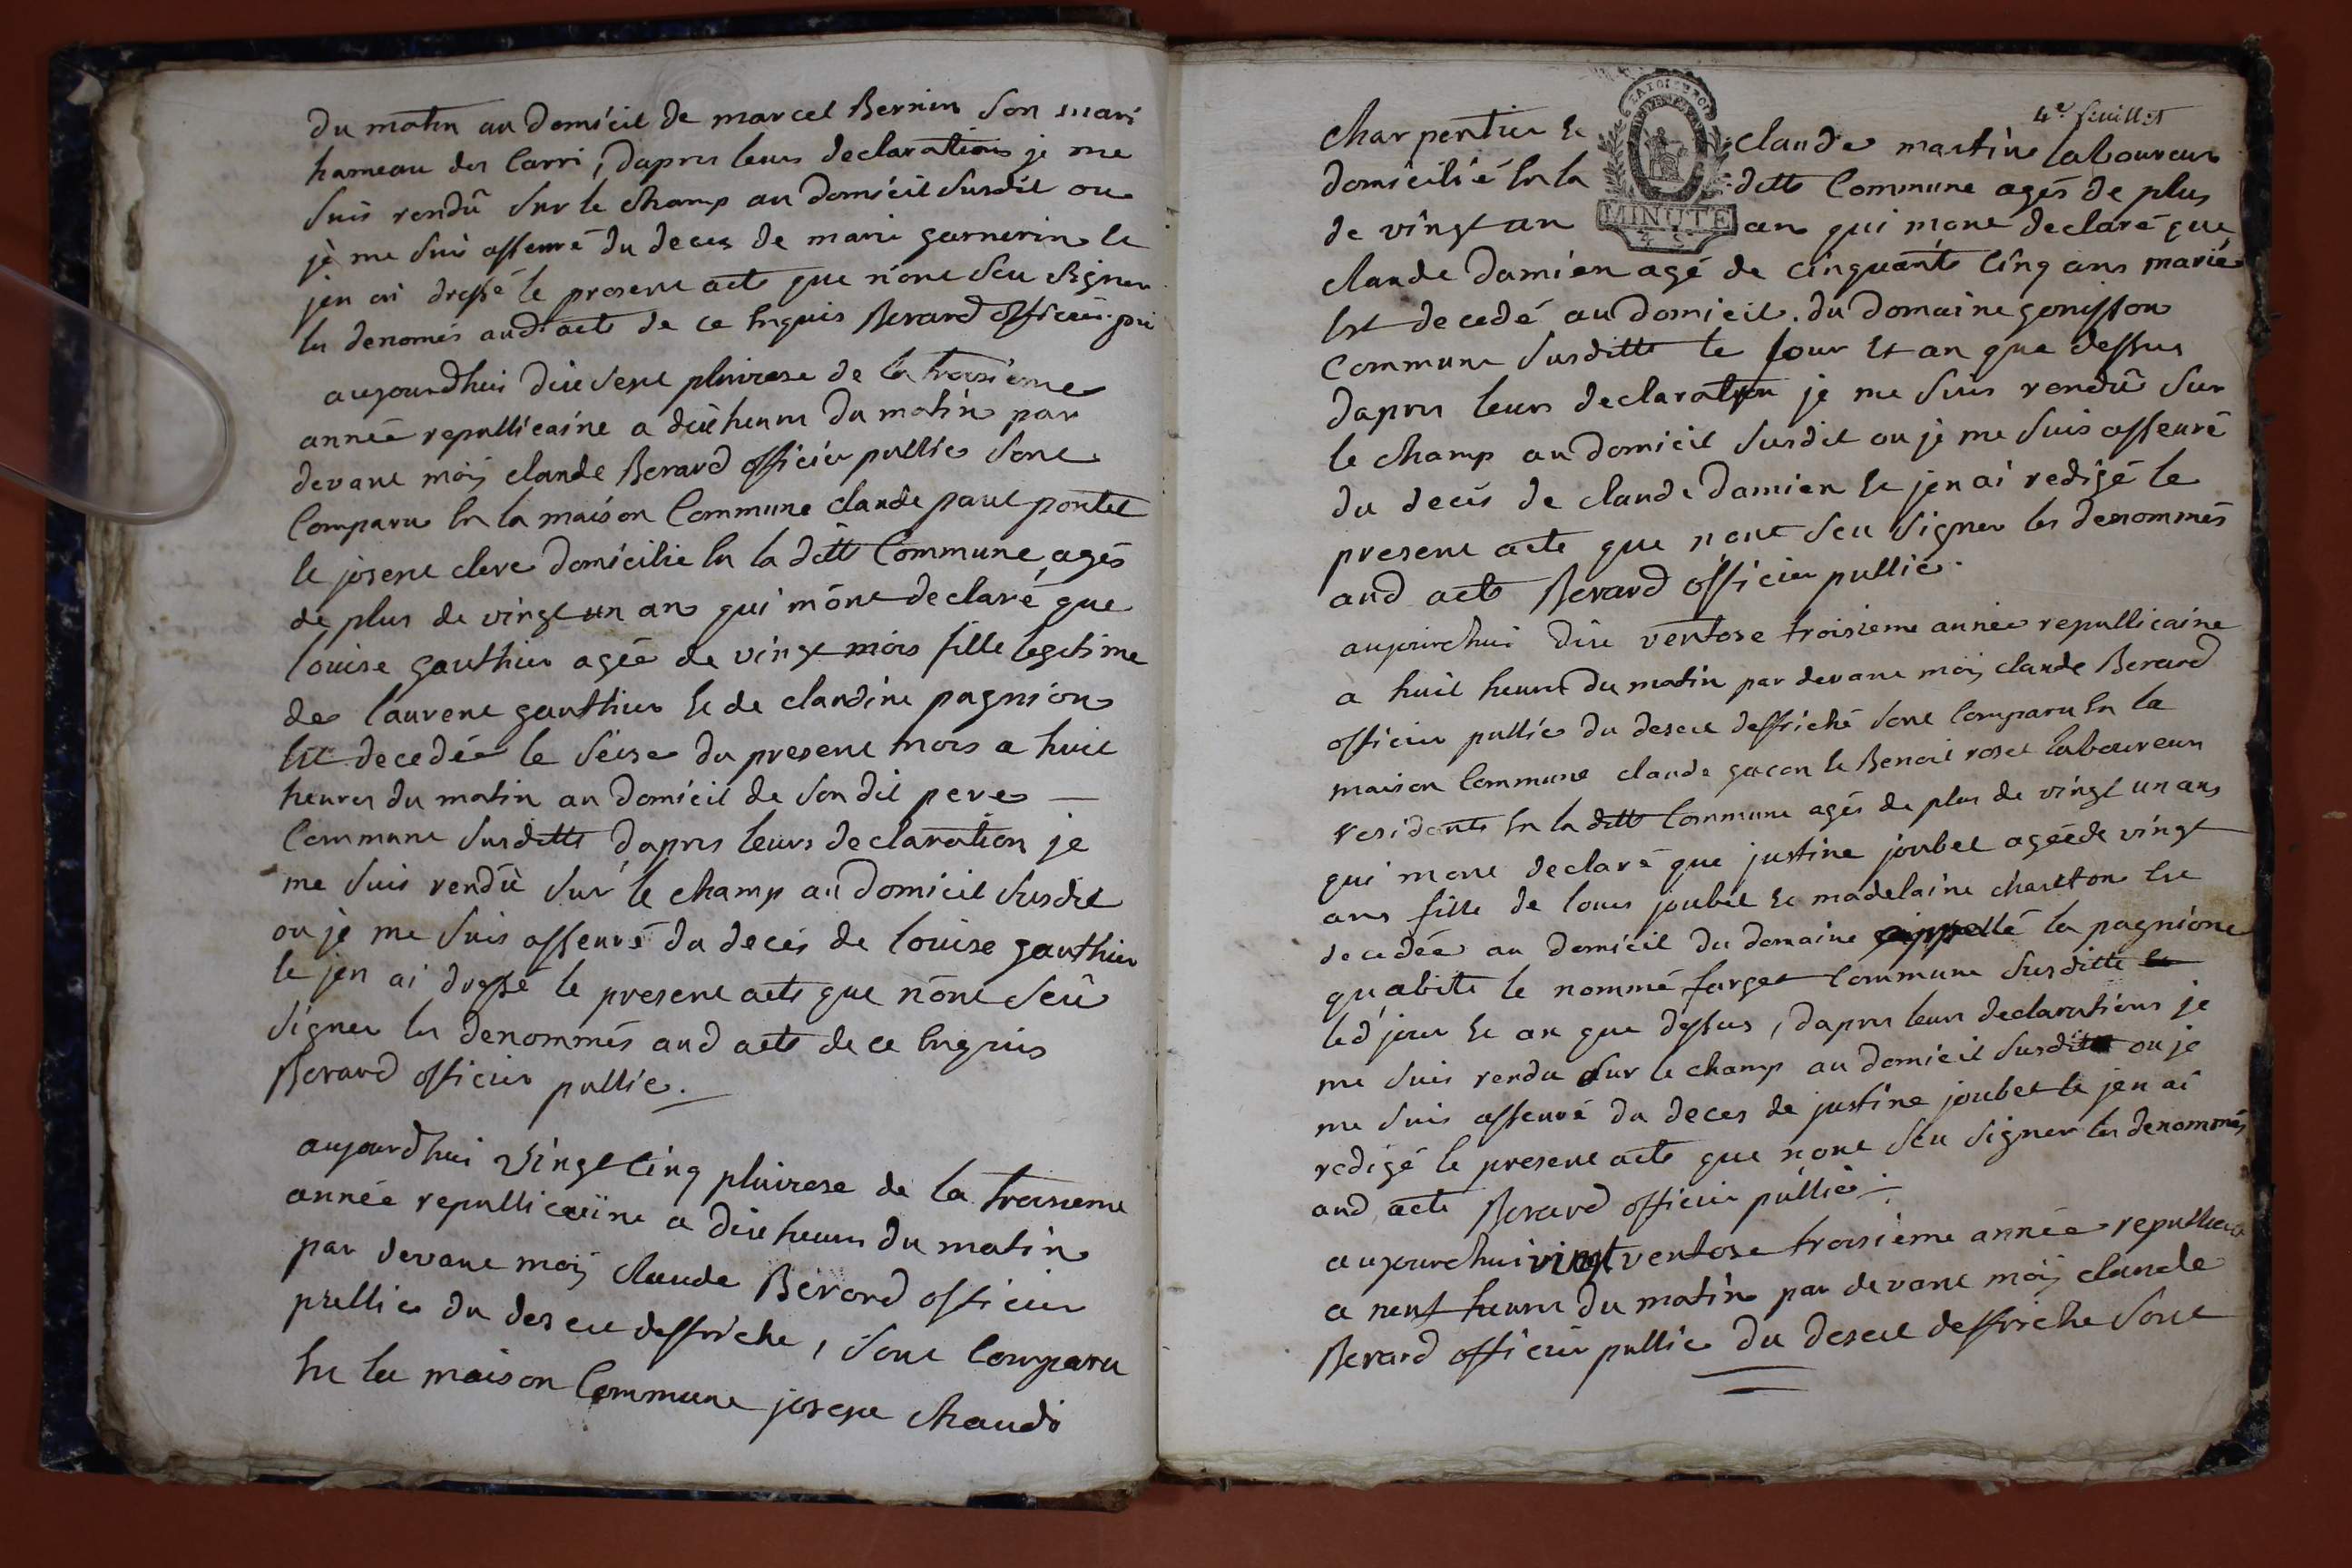 du matin au domicil de marcel Bernin son mari
hameau des Carri, dapres leurs declarations je me
suis rendû sur le champ au domicil susdit ou
jè me suis asseuré du deces de marie garnerin et
jen ai dressé le present acte que n'ont seu signer
les denomés aud. acte de ce enquis Berard officier
aujourdhui dixsept pluviose de la troisieme
année republicaine a dix heures du matin par
devant moy claude Berard officier public sont
Comparu en la maison Commune claude paul pontet
et joseph clere domicilié en la ditte Commune, agés
de plus de vingt un an qui m'ont declaré que
louise gauthier agée de vingt mois fille legitime
de laurent gauthier et de claudine pagnion
est decedée le seise du present mois a huit
heures du matin au domicil de son dit pere —
Commune susditte dapres leurs declaration je
me suis rendû sur le champ au domicil susdit
ou jè me suis asseuré du decés de louise gauthier
et jen ai dressé le present acte que n'ont seû
signer les denommés aud acte de ce enquis
Berard officier public.
aujourdhui vingt cinq pluviose de la troisieme
année republicaine a dix heures du matin
par devant moy Claude Berard officier
public du desert deffriche, sont Comparu
en la maison Commune joseph Chaudi
4e feuillet
Charpentier et claude martin laboureur
domicilié en la ditte Commune agés de plus
de vingt un an qui mont declaré que
MINUTE
claude Damien agé de cinquante cinq ans marié
est decedé au domicil. du domaine gonisson
Commune susditte le jour et an que dessus
dapres leurs declaration je me suis rendû sur
le champ au domicil susdit ou jè me suis asseuré
du decés de claude Damien et jen ai redigé le
present acte que n'ont seu signer les denommés
aud acte Berard officier public.
aujourdhui dix ventose troisieme année republicaine
a huit heures du matin par devant moy claude Berard
officier public du desert deffriché sont Comparu en la
maison Commune claude gacon et Benoit roset laboureurs
residents en la ditte Commune agés de plus de vingt un ans
qui mont declaré que justine joubet agée de vingt
ans fille de louis joubet et madelaine chareton est
decedée au domicil du domaine appellé la pagnione
qu'abite le nommé farget Commune susditte
led jour et an que dessus, dapres leurs declarations je
me suis rendu sur le champ au domicil susdit ou je
me suis asseuré du deces de justine joubet et jen ai
redigé le present acte que n'ont seu signer les denommés
aud acte Berard officier public.
aujourdhui vingt ventose troisieme année republicaine
a neuf heures du matin par devant moy claude
Berard officier public du desert deffriche sont